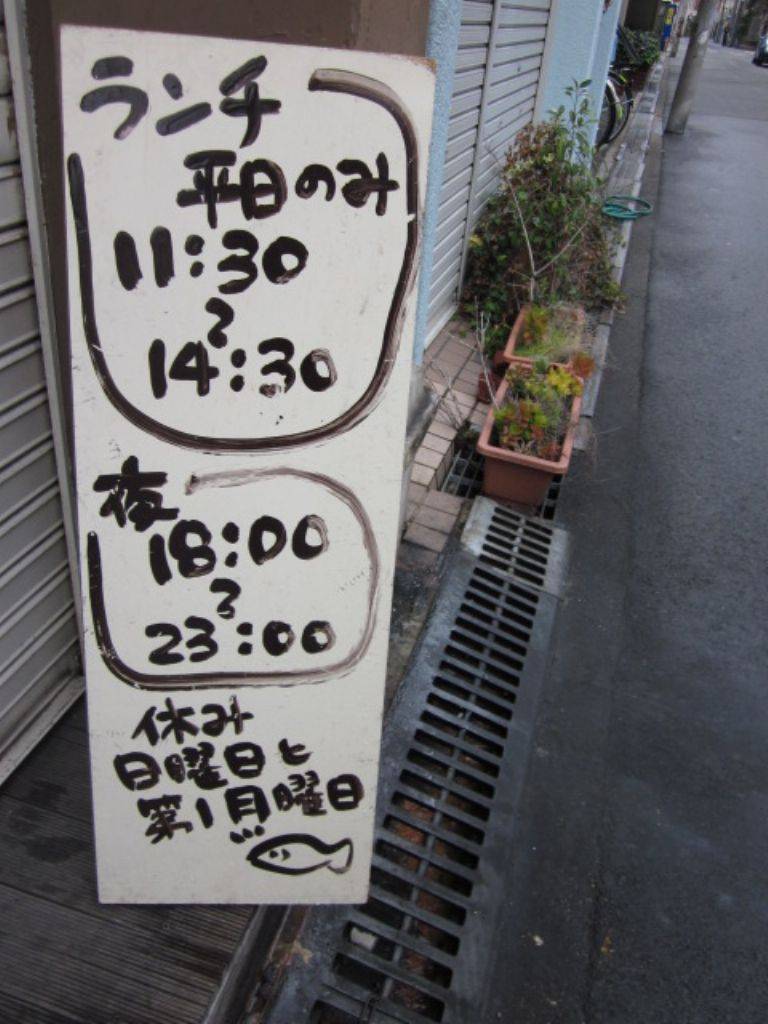 ランチ
平日のみ
11:30
〜
14:30
夜
18:00
〜
23:00
休み
日曜日と
第1月曜日